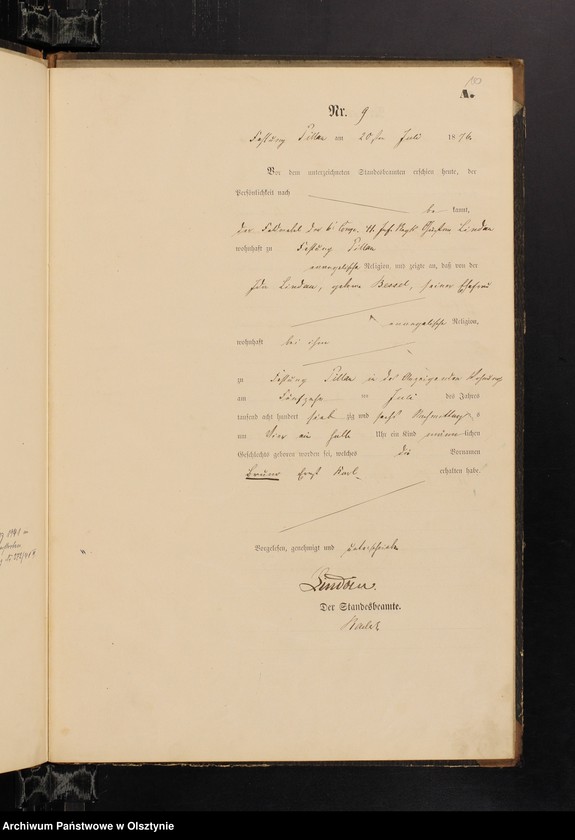 A.
Nr. 9
Festung Pillau am 20ten Juli 1876
Vor dem unterzeichneten Standesbeamten erschien heute, der
Persönlichkeit nach
be kannt,
der Feldwebel der 6 Lindau
wohnhaft zu Festung Pillau
evangelische Religion, und zeigte an, daß von der
Ida Lindau, geborne Bessel, seiner Ehefrau
evangelische Religion,
wohnhaft bei ihm
zu Festung Pillau in des Anzeigenden Wohnung
am Juli des Jahres
tausend acht hundert sieb zig und sechs Nachmittags
um vier ein halb Uhr ein Kind männ lichen
Geschlechts geboren worden sei, welches die Vornamen
Bruno Ernst Karl erhalten habe.
Vorgelesen, genehmigt und unterschrieben
Lindau.
Der Standesbeamte.
Archiwum Państwowe w Olsztynie